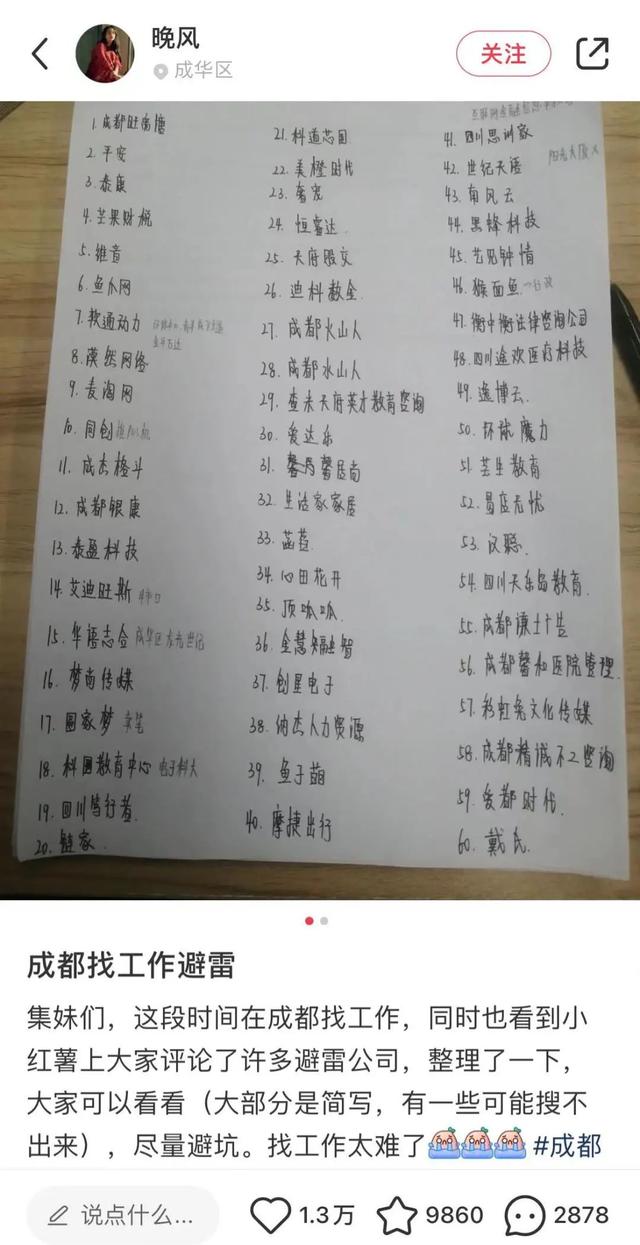 晚风
成华区
关注
2. 平安
3. 泰康
4. 芒果财税
5. 维音
6. 鱼爪网
7. 软通动力
8. 漠然网络
9. 麦淘网
10. 同创
11. 成杰格斗
12. 成都银康
13. 泰盈科技
14. 艾迪旺斯
15. 华语志合 成华区东光世纪
16. 梦南传媒
17. 圆家梦
18. 科园教育中心 电子科大
19. 四川笃行者
20. 链家
21. 科道芯国
22. 美橙时代
23. 奢宠
24. 恒睿达
25. 天府股交
26. 迪科数金
27. 成都火山人
28. 成都水山人
29. 查未天府英才教育咨询
30. 爱达乐
31. 馨居尚
32. 生活家家居
33. 菡萏
34. 心田花开
35. 顶呱呱
36. 金慧融智
37. 创星电子
38. 纳杰人力资源
39. 鱼子酱
40. 摩捷出行
41. 四川思训家
42. 世纪天语
43. 有风云
44. 黑蜂科技
45. 艺见钟情
46. 猴面鱼
47. 衡中衡法律咨询公司
48. 四川途欢医疗科技
49. 逸博云
50. 环球魔力
51. 芸生教育
52. 易店无忧
53. 汉聪
54. 四川天乐岛教育
55. 成都谦士广告
56. 成都馨和医院管理
57. 彩虹兔文化传媒
58. 成都精诚不二咨询
59. 爱都时代
60. 戴氏
成都找工作避雷
集妹们，这段时间在成都找工作，同时也看到小
红薯上大家评论了许多避雷公司，整理了一下，
大家可以看看（大部分是简写，有一些可能搜不
出来），尽量避坑。找工作太难了 #成都
说点什么...
1.3万
9860
2878